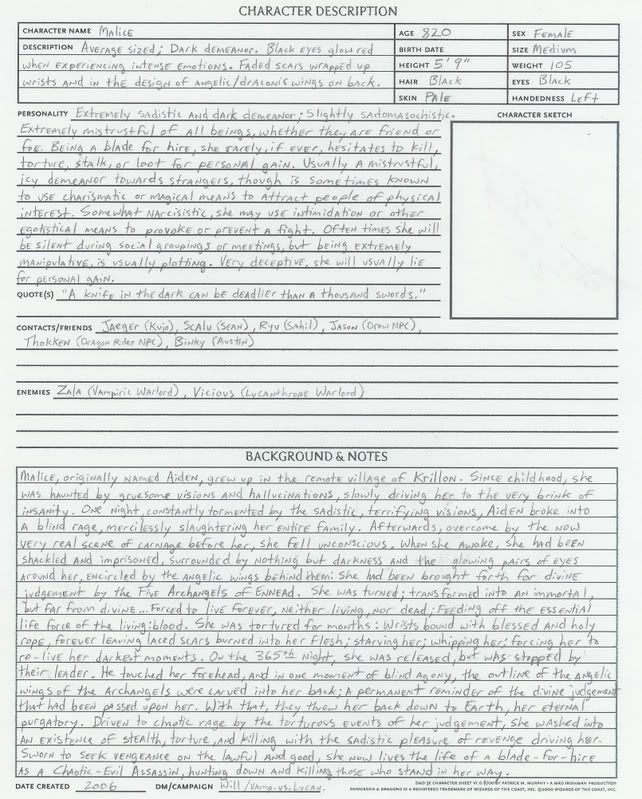 CHARACTER DESCRIPTION
CHARACTER NAME Malice
AGE 820 SEX Female
DESCRIPTION Average sized; Dark demeanor. Black eyes glow red
BIRTH DATE SIZE Medium
when experiencing intense emotions. Faded scars wrapped up
HEIGHT 5' 9" WEIGHT 105
wrists and in the design of angelic/draconic wings on back.
HAIR Black EYES Black
SKIN Pale HANDEDNESS Left
PERSONALITY Extremely sadistic and dark demeanor; slightly sadomasochistic.
CHARACTER SKETCH
Extremely mistrustful of all beings, whether they are friend or
foe. Being a blade for hire, she rarely, if ever, hesitates to kill,
torture, stalk, or loot for personal gain. Usually a mistrustful,
icy demeanor towards strangers, though is sometimes known
to use charismatic or magical means to attract people of physical
interest. Somewhat narcisistic, she may use intimidation or other
egotistical means to provoke or prevent a fight. Often times she will
be silent during social groupings or meetings, but being extremely
manipulative, is usually plotting. Very deceptive, she will usually lie
for personal gain.
QUOTE(S) "A knife in the dark can be deadlier than a thousand swords."
CONTACTS/FRIENDS Jaeger (Kujo), Scalu (Sean), Ryu (Sahil), Jason (Drow NPC),
Thokken (Dragon Rider NPC), Binky (Austin)
ENEMIES Zala (Vampiric Warlord), Vicious (Lycanthrope Warlord)
BACKGROUND & NOTES
Malice, originally named Aiden, grew up in the remote village of Krillon. Since childhood, she
was haunted by gruesome visions and hallucinations, slowly driving her to the very brink of
insanity. One night, constantly tormented by the sadistic, terrifying visions, Aiden broke into
a blind rage, mercilessly slaughtering her entire family. Afterwards, overcome by the now
very real scene of carnage before her, she fell unconscious. When she awoke, she had been
shackled and imprisoned, surrounded by nothing but darkness and the glowing pairs of eyes
around her, encircled by the angelic wings behind them: She had been brought forth for divine
judgement by the Five Archangels of Ennead. She was turned; transformed into an immortal,
but far from divine... Forced to live forever, neither living, nor dead; Feeding off the essential
life force of the living: blood. She was tortured for months: Wrists bound with blessed and holy
rope, forever leaving laced scars burned into her flesh; starving her; whipping her; forcing her to
re-live her darkest moments. On the 365th night, she was released, but was stopped by
their leader. He touched her forehead, and in one moment of blind agony, the outline of the angelic
wings of the Archangels were carved into her back; a permanent reminder of the divine judgement
that had been passed upon her. With that, they threw her back down to Earth, her eternal
purgatory. Driven to chaotic rage by the torturous events of her judgement, she washed into
an existence of stealth, torture, and killing with the sadistic pleasure of revenge driving her.
Sworn to seek vengeance on the lawful and good, she now lives the life of a blade-for-hire
as a Chaotic-Evil Assassin, hunting down and killing those who stand in her way.
DATE CREATED 2006 DM/CAMPAIGN Will / Vamp. vs. Lycan.
D&D 3E CHARACTER SHEET V1.0 8/00 BY PATRICK M. MURPHY • A MAD IRISHMAN PRODUCTION
DUNGEONS & DRAGONS IS A REGISTERED TRADEMARK OF WIZARDS OF THE COAST, INC. ©2000 WIZARDS OF THE COAST, INC.